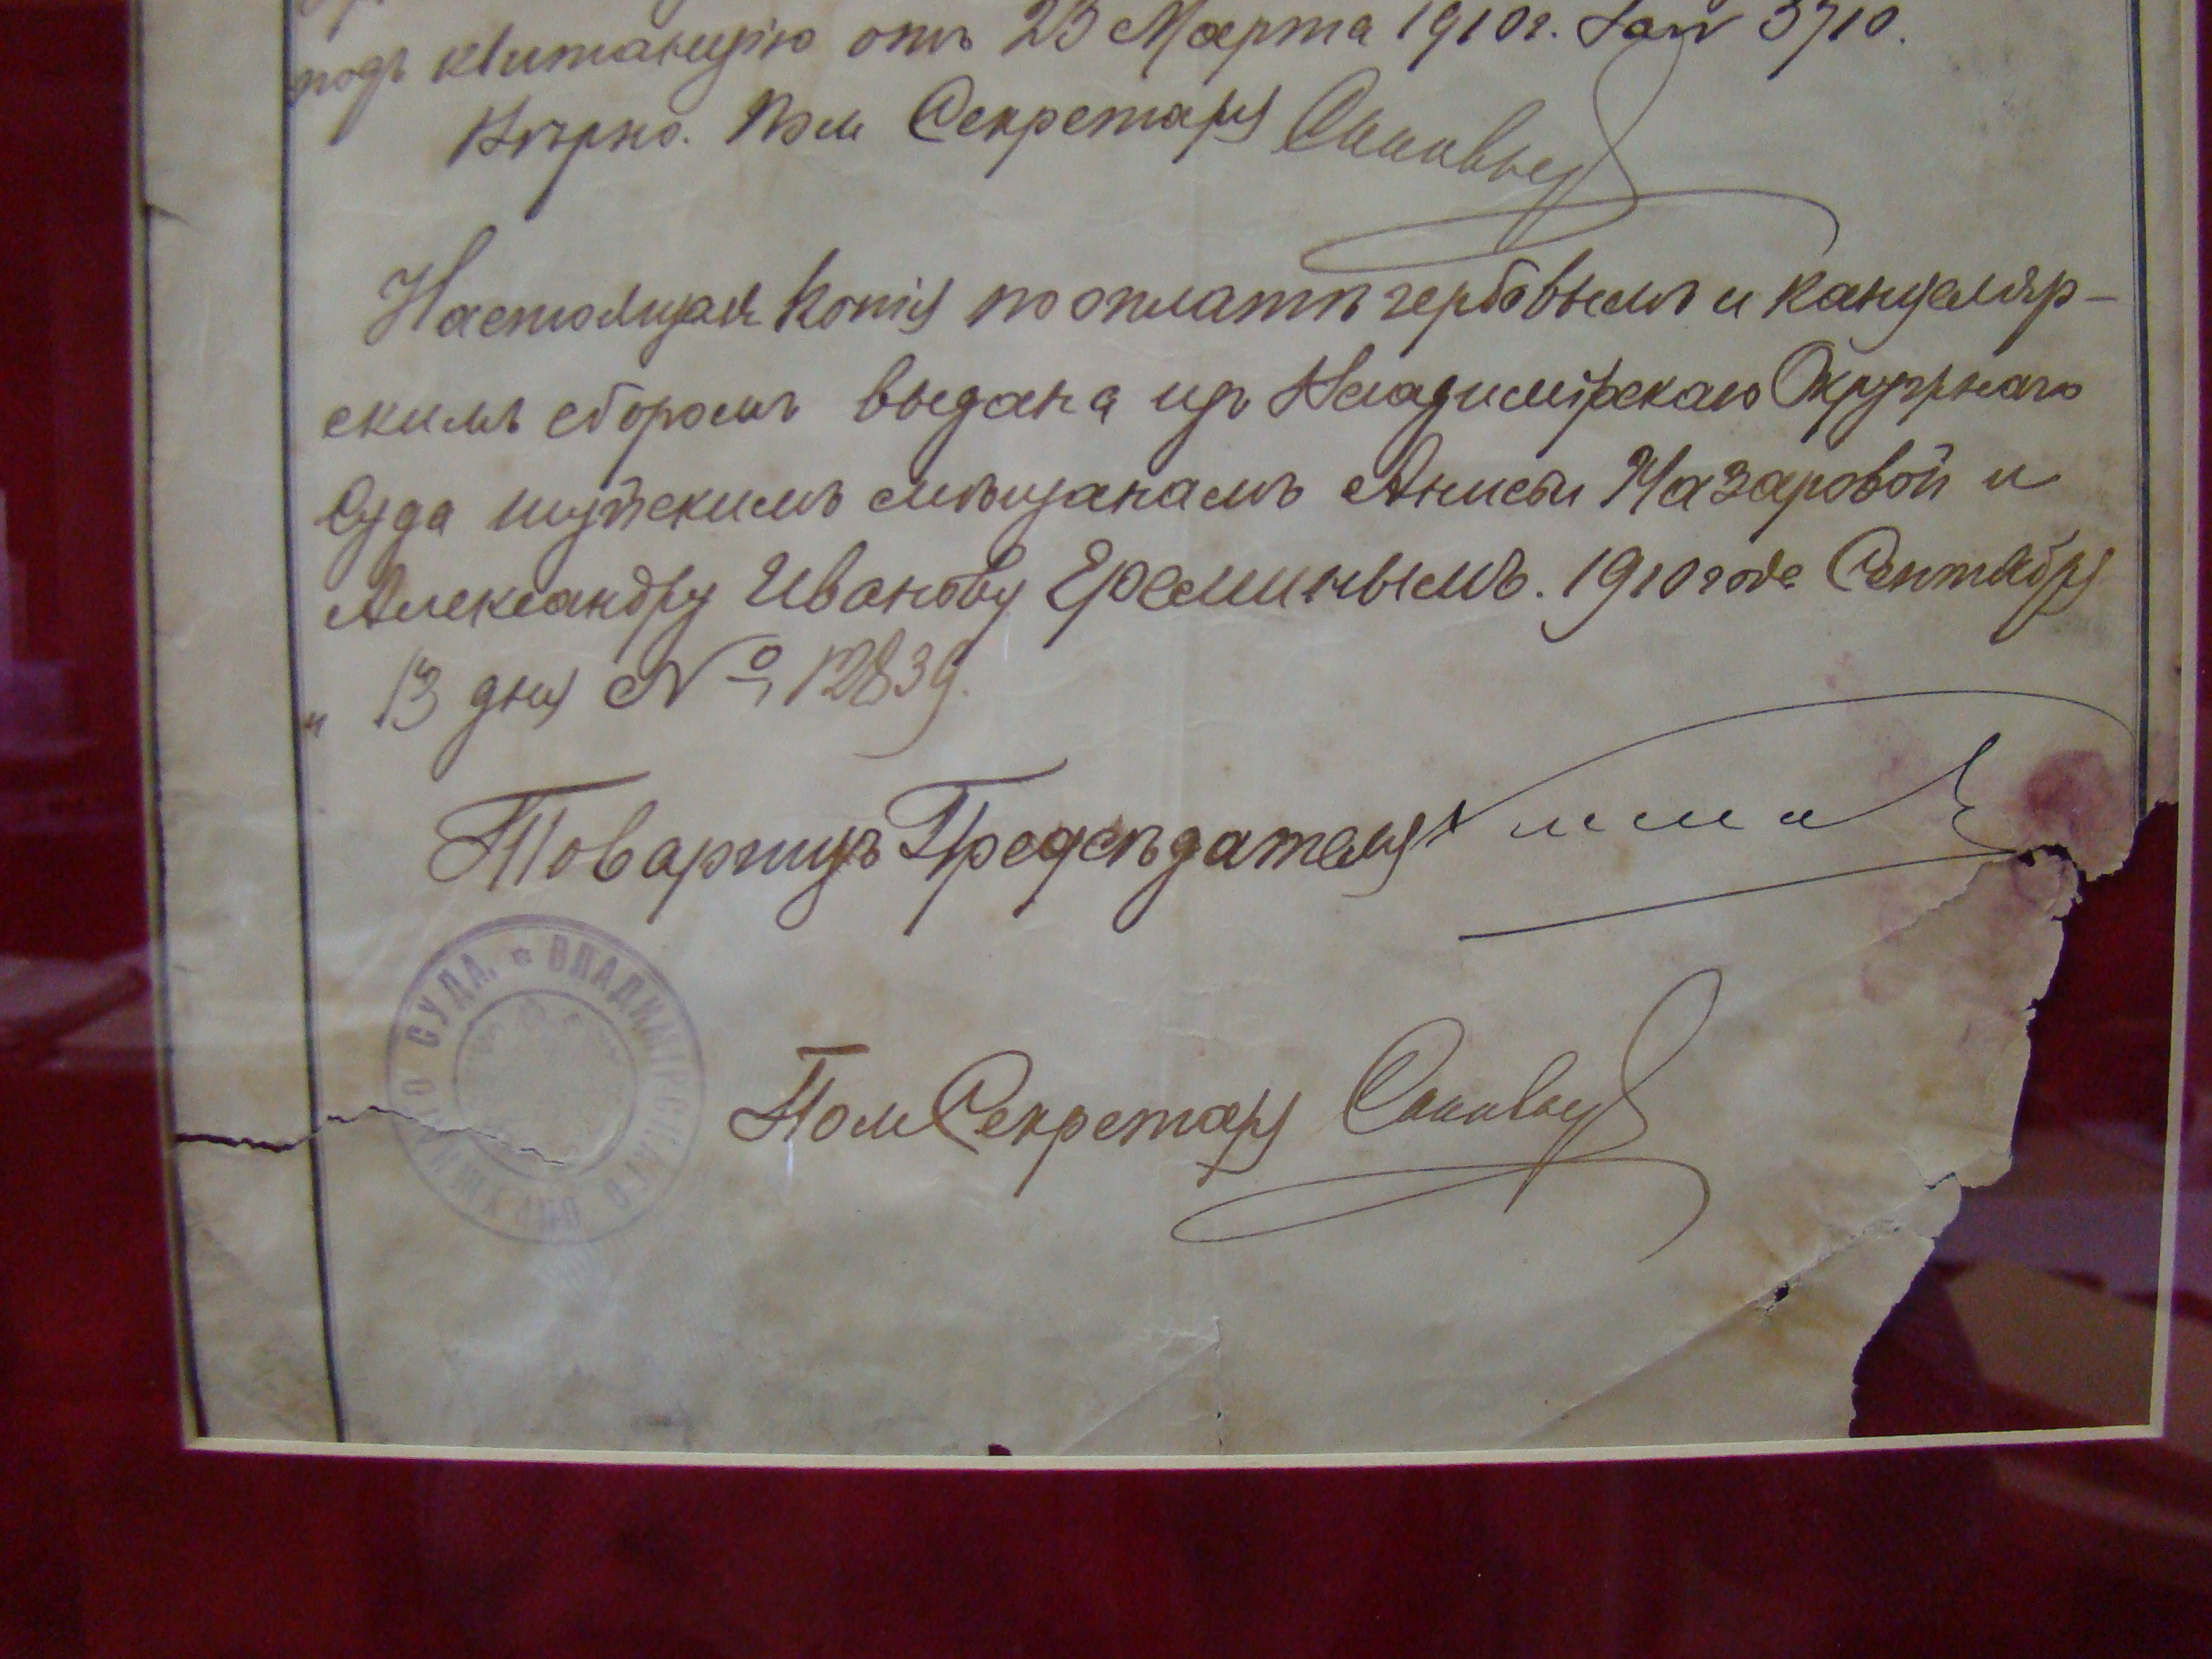 подъ квитанцію отъ 23 Марта 1910г. за № 3710.
Вѣрно. Пом Секретаря
Настоящая копія по оплатѣ гербовымъ и канцеляр-
скимъ сборомъ выдана изъ Владимірскаго Окружнаго
Суда шуйскимъ мѣщанамъ Анисьи Назаровой и
Александру Иванову Ереминымъ. 1910 года Сентября
" 13 дня № 12839.
Товарищъ Предсѣдателя
ВЛАДИМІРСКАГО ОКРУЖНАГО СУДА
Пом Секретаря